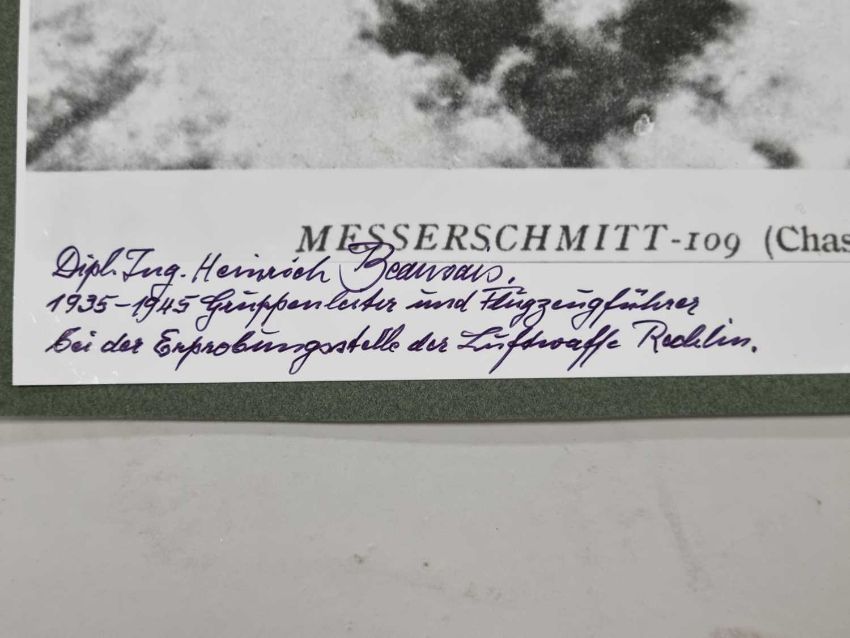 MESSERSCHMITT-109 (Chas
Dipl. Ing. Heinrich Beauvais.
1935-1945 Gruppenleiter und Flugzeugführer
bei der Erprobungsstelle der Luftwaffe Rechlin.